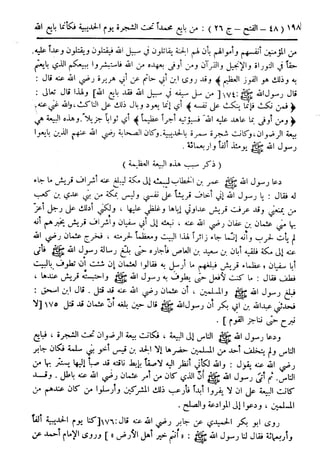 ١٩٨ (٤٨ - الفتح - ج ٢٦) : من بايع محمداً تحت الشجرة يوم الحديبية فكأنما بايع الله
من المؤمنين أنفسهم وأموالهم بأن لهم الجنة يقاتلون في سبيل الله فيقتلون ويقتلون وعداً عليه
حقاً في التوراة والإنجيل والقرآن ومن أوفى بعهده من الله فاستبشروا ببيعكم الذي بايعتم
به وذلك هو الفوز العظيم﴾ وقد روى ابن أبي حاتم عن أبي هريرة رضي الله عنه قال :
قال رسول الله ﷺ : ١٧٤[ من سل سيفه في سبيل الله فقد بايع الله] ولهذا قال تعالى :
﴿ فمن نكث فإنما ينكث على نفسه ﴾ أي إنما يعود وبال ذلك على الناكث، والله غني عنه،
﴿ومن أوفى بما عاهد عليه الله فسيؤتيه أجراً عظيماً﴾ أي ثواباً جزيلاً. وهذه البيعة هي
بيعة الرضوان، وكانت تحت شجرة سمرة بالحديبية. وكان الصحابة رضي الله عنهم الذين بايعوا
رسول الله ﷺ يومئذ ألفاً وأربعمائة.
( ذكر سبب هذه البيعة العظيمة )
دعا رسول الله ﷺ عمر بن الخطاب ليبعثه إلى مكة ليبلغ عنه أشراف قريش ما جاء
له فقال : يا رسول الله إني أخاف قريشاً على نفسي وليس بمكة من بني عدي بن كعب
من يمنعني وقد عرفت قريش عداوتي إياها وغلظي عليها ، ولكني أدلك على رجل أعز
بها مني عثمان بن عفان رضي الله عنه ، نبعثه إلى أبي سفيان وأشراف قريش يخبرهم أنه
لم يأت لحرب وأنه إنما جاء زائراً لهذا البيت ومعظماً لحرمته ، فخرج عثمان رضي الله
عنه إلى مكة فلقيه أبان بن سعيد بن العاص فأجاره حتى بلغ رسالة رسول الله ﷺ فأتى
أبا سفيان وعظماء قريش فبلغهم ما أرسل به فقالوا لعثمان إن شئت أن تطوف بالبيت
فطف فقال : ما كنت لأفعل حتى يطوف به رسول الله ﷺ واحتبسته قريش عندها ،
فبلغ رسول الله ﷺ والمسلمين ، أن عثمان رضي الله عنه قد قتل . قال ابن اسحق :
فحدثني عبدالله بن أبي بكر أن رسول الله ﷺ قال حين بلغه أن عثمان قد قتل ١٧٥[لا
نبرح حتى نناجز القوم ] .
ودعا رسول الله ﷺ الناس إلى البيعة ، فكانت بيعة الرضوان تحت الشجرة ، فبايع
الناس ولم يتخلف أحد من المسلمين حضرها إلا الجد بن قيس أخو بني سلمة فكان جابر
رضي الله عنه يقول : والله لكأني أنظر إليه لاصقاً بإبط ناقته قد صبأ إليها يستتر بها من
الناس. ثم أتى رسول الله ﷺ أن الذي كان من أمر عثمان رضي الله عنه باطل . وقد
كانت البيعة على ان لا يفروا أبداً فأرعب ذلك المشركين وأرسلوا من كان عندهم من
المسلمين ، ودعوا إلى الموادعة والصلح .
روى ابو بكر الحميدي عن جابر رضي الله عنه قال:١٧٦[كنا يوم الحديبية ألفاً
وأربعمائة فقال لنا رسول الله ﷺ : «أنتم خير أهل الأرض»] وروى الإمام أحمد عن